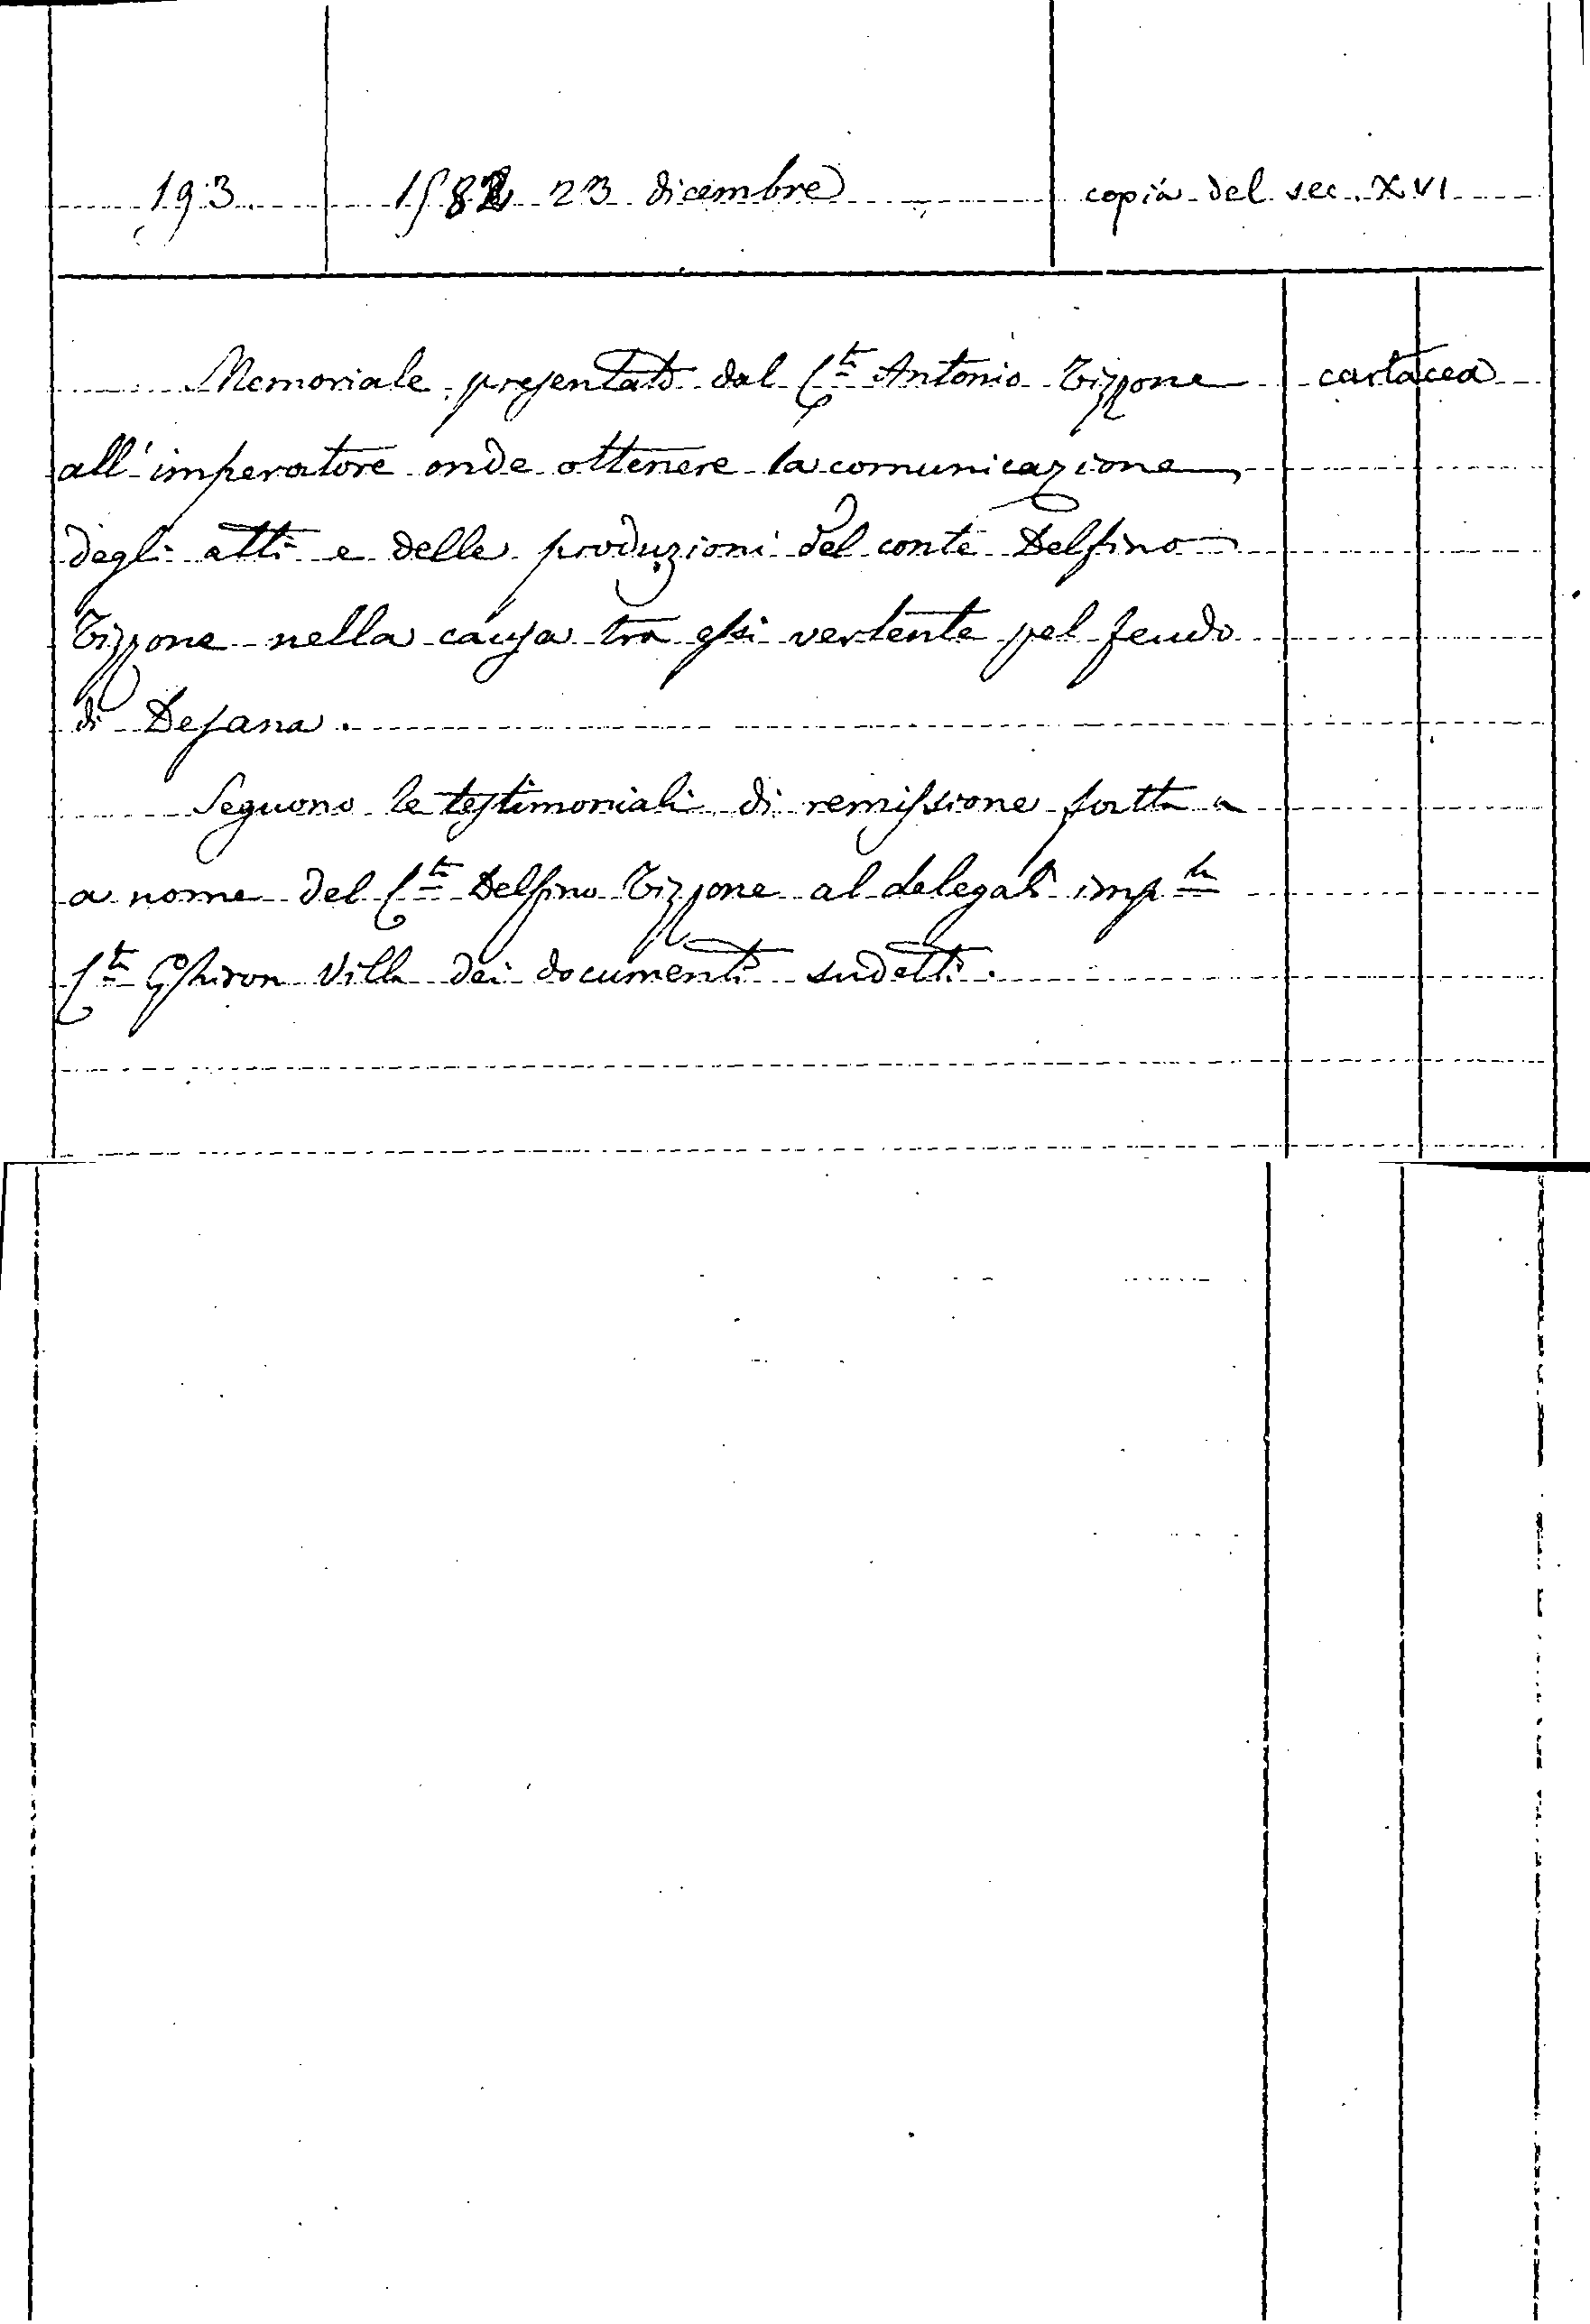 193.
1582 23 dicembre
copia del sec. XVI
Memoriale presentato dal Cte Antonio Tizzone
cartacea
all'imperatore onde ottenere la comunicazione
degli atti e delle produzioni del conte Delfino
Tizzone nella causa tra essi vertente pel feudo
di Desana.
Seguono le testimoniali di remissione fatta
a nome del Cte Delfino Tizzone al delegato imple
Cte Villa dei documenti sudetti.